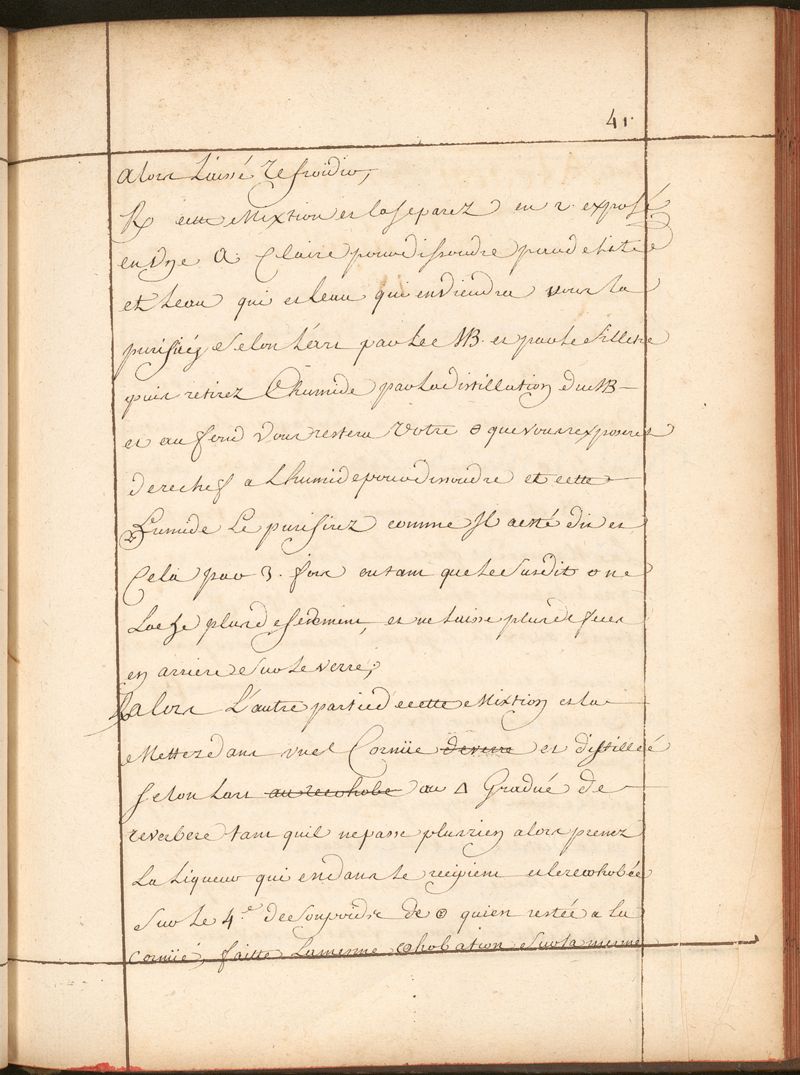 41
alors Laissé Refroidir,
cette Mixtion et la separez en 2. exposé
en claire pour dissoudre
et Leau qui et Leau qui en Viendra vous la
purifiéz Selon L'art par Le MB. et par Le filtre
puis retirez L'humide par La distillation du MB
et au fond Vous restera Votre que vous exposerez
derechef a L'humide pour dissoudre et cette
Lumide Le purifirez comme Il a esté dit et
Cela par 3. fois en tant que Le Susdit ne
plus de sediment, et ne Laisse plus de feces
en arriere Sur Le verre,
alors L'autre partie de cette Mixtion et la
Mettez dans une Cornüe de verre et distilleé
Selon Lart au recohobe au △ Gradué de
reverbere tant quil ne passe plus rien alors prenez
La Liqueur qui en dans Le recipient et le recohobée
Sur Le 4.e de Son poidse de qui en restée a la
Cornüé, faitte La mesme cohobation Sur la mesme